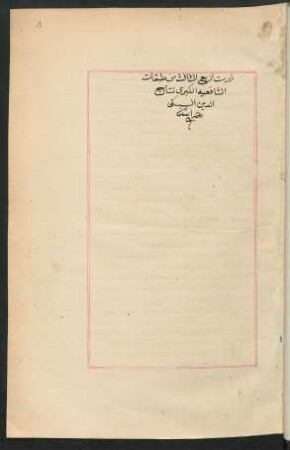 فهرست الربع الثالث من طبقات
الشافعية الكبرى لتاج
الدين السبكى
رحمه الله